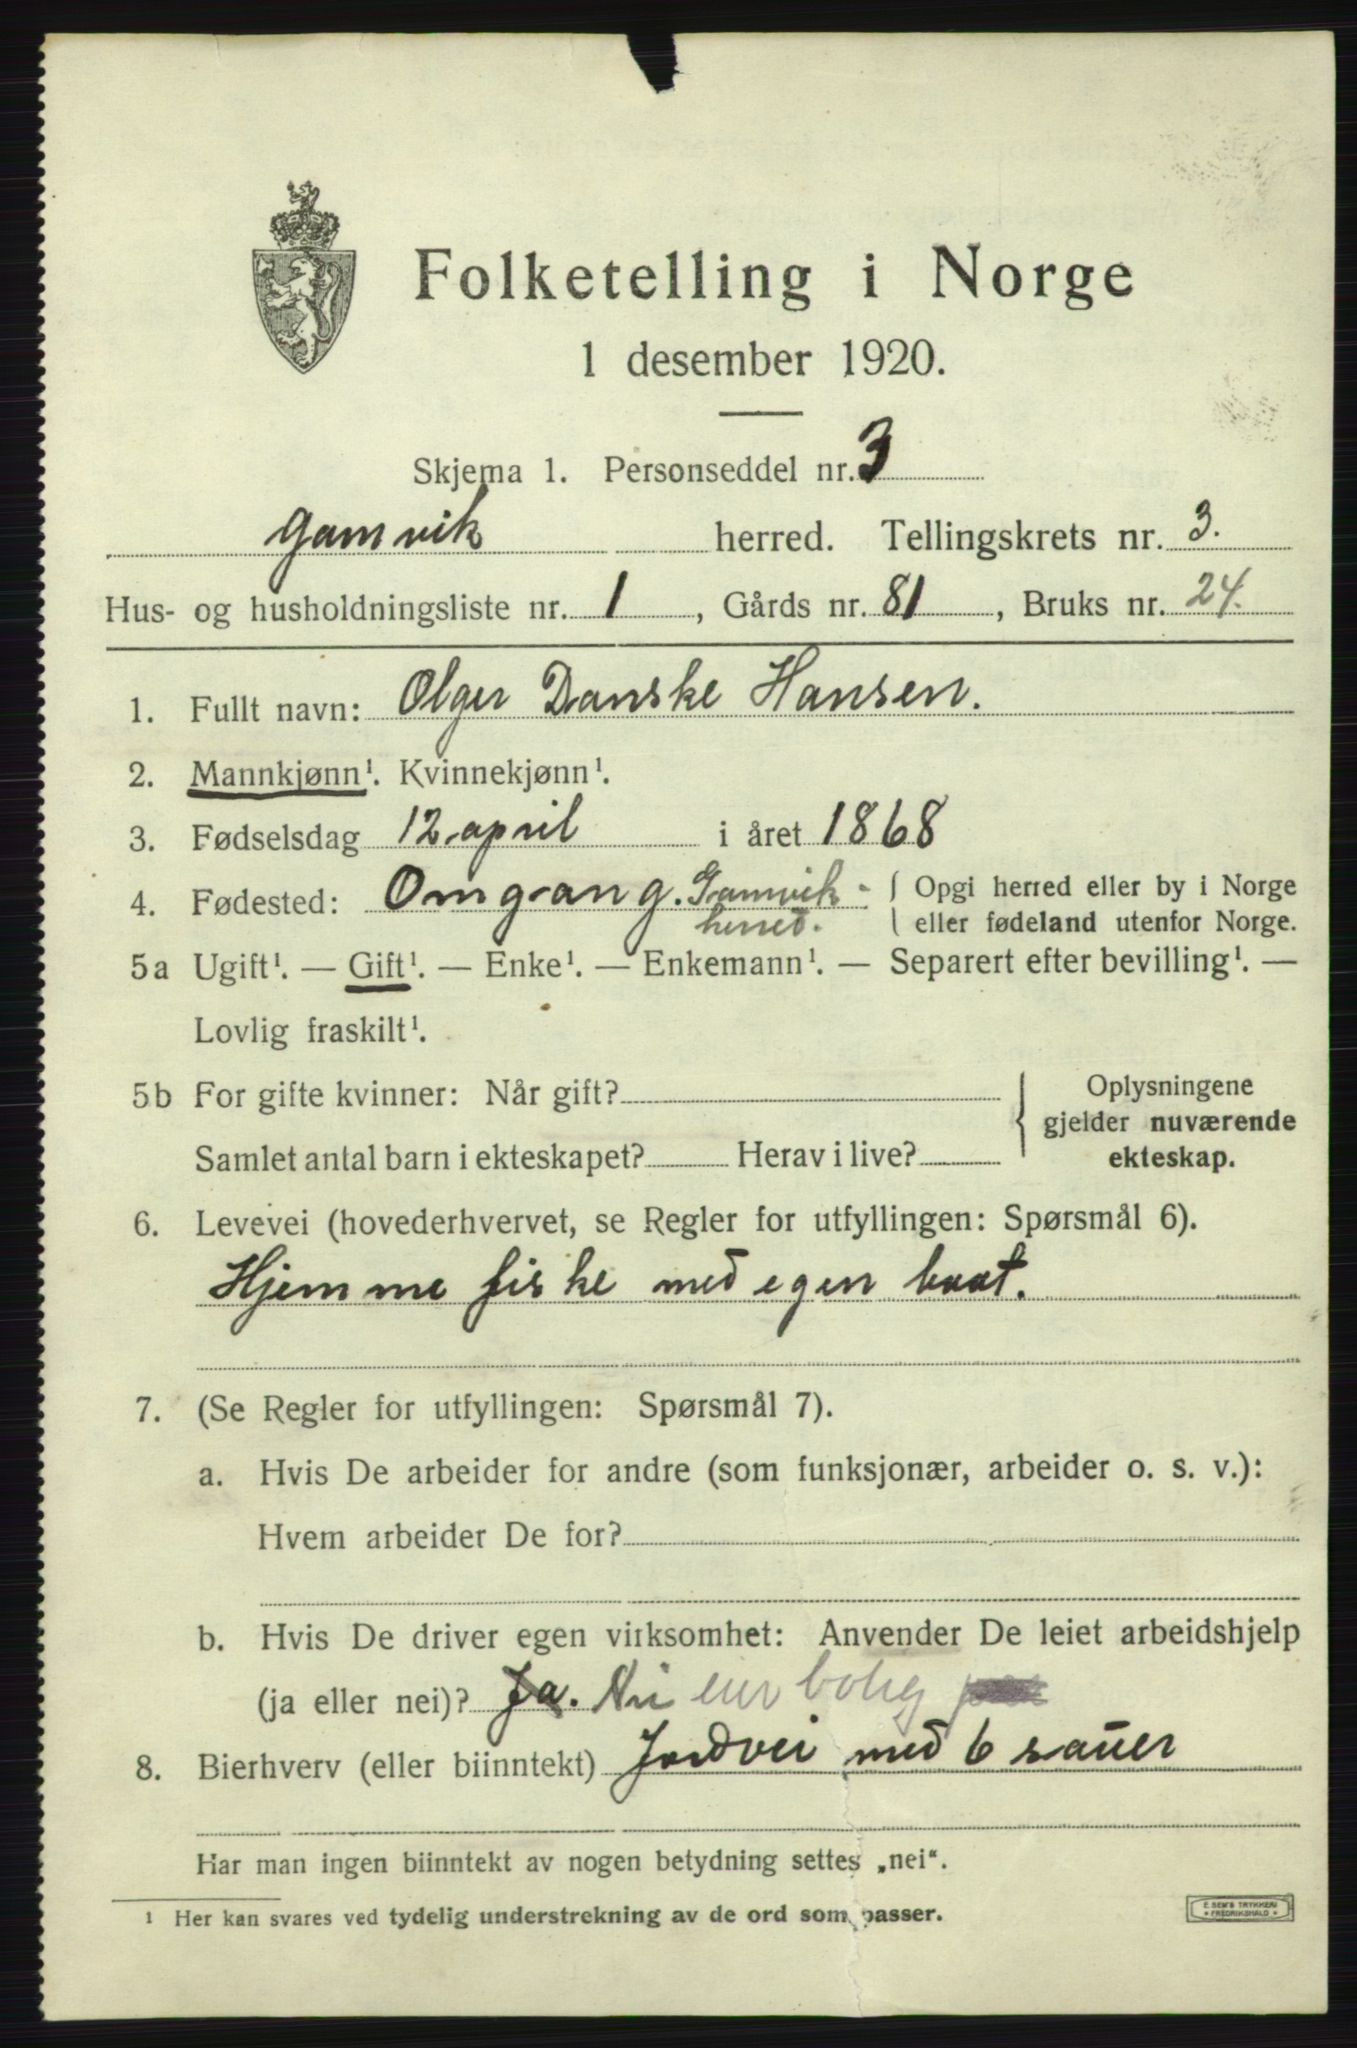 Folketelling i Norge
1 desember 1920.
Skjema 1. Personseddel nr. 3
Gamvik herred. Tellingskrets nr. 3.
Hus- og husholdningsliste nr. 1, Gårds nr. 81, Bruks nr. 24.
1. Fullt navn: Olger Danske Hansen.
2. Mannkjønn¹. Kvinnekjønn¹.
3. Fødselsdag 12 april i året 1868
4. Fødested: Omgang. Gamvik herred. { Opgi herred eller by i Norge
eller fødeland utenfor Norge.
5a Ugift¹. — Gift¹. — Enke¹. — Enkemann¹. — Separert efter bevilling¹. —
Lovlig fraskilt¹.
5b For gifte kvinner: Når gift?
Samlet antal barn i ekteskapet? Herav i live?
Oplysningene
gjelder nuværende
ekteskap.
6. Levevei (hovederhvervet, se Regler for utfyllingen: Spørsmål 6).
Hjemme fiske med egen baat.
7. (Se Regler for utfyllingen: Spørsmål 7).
a. Hvis De arbeider for andre (som funksjonær, arbeider o. s. v.):
Hvem arbeider De for?
b. Hvis De driver egen virksomhet: Anvender De leiet arbeidshjelp
(ja eller nei)? Ja. bolig
8. Bierhverv (eller biinntekt) Jordvei med 6 sauer
Har man ingen biinntekt av nogen betydning settes „nei“.
¹ Her kan svares ved tydelig understrekning av de ord som passer.
E. SEM'S TRYKKERI
* FREDRIKSHALD *